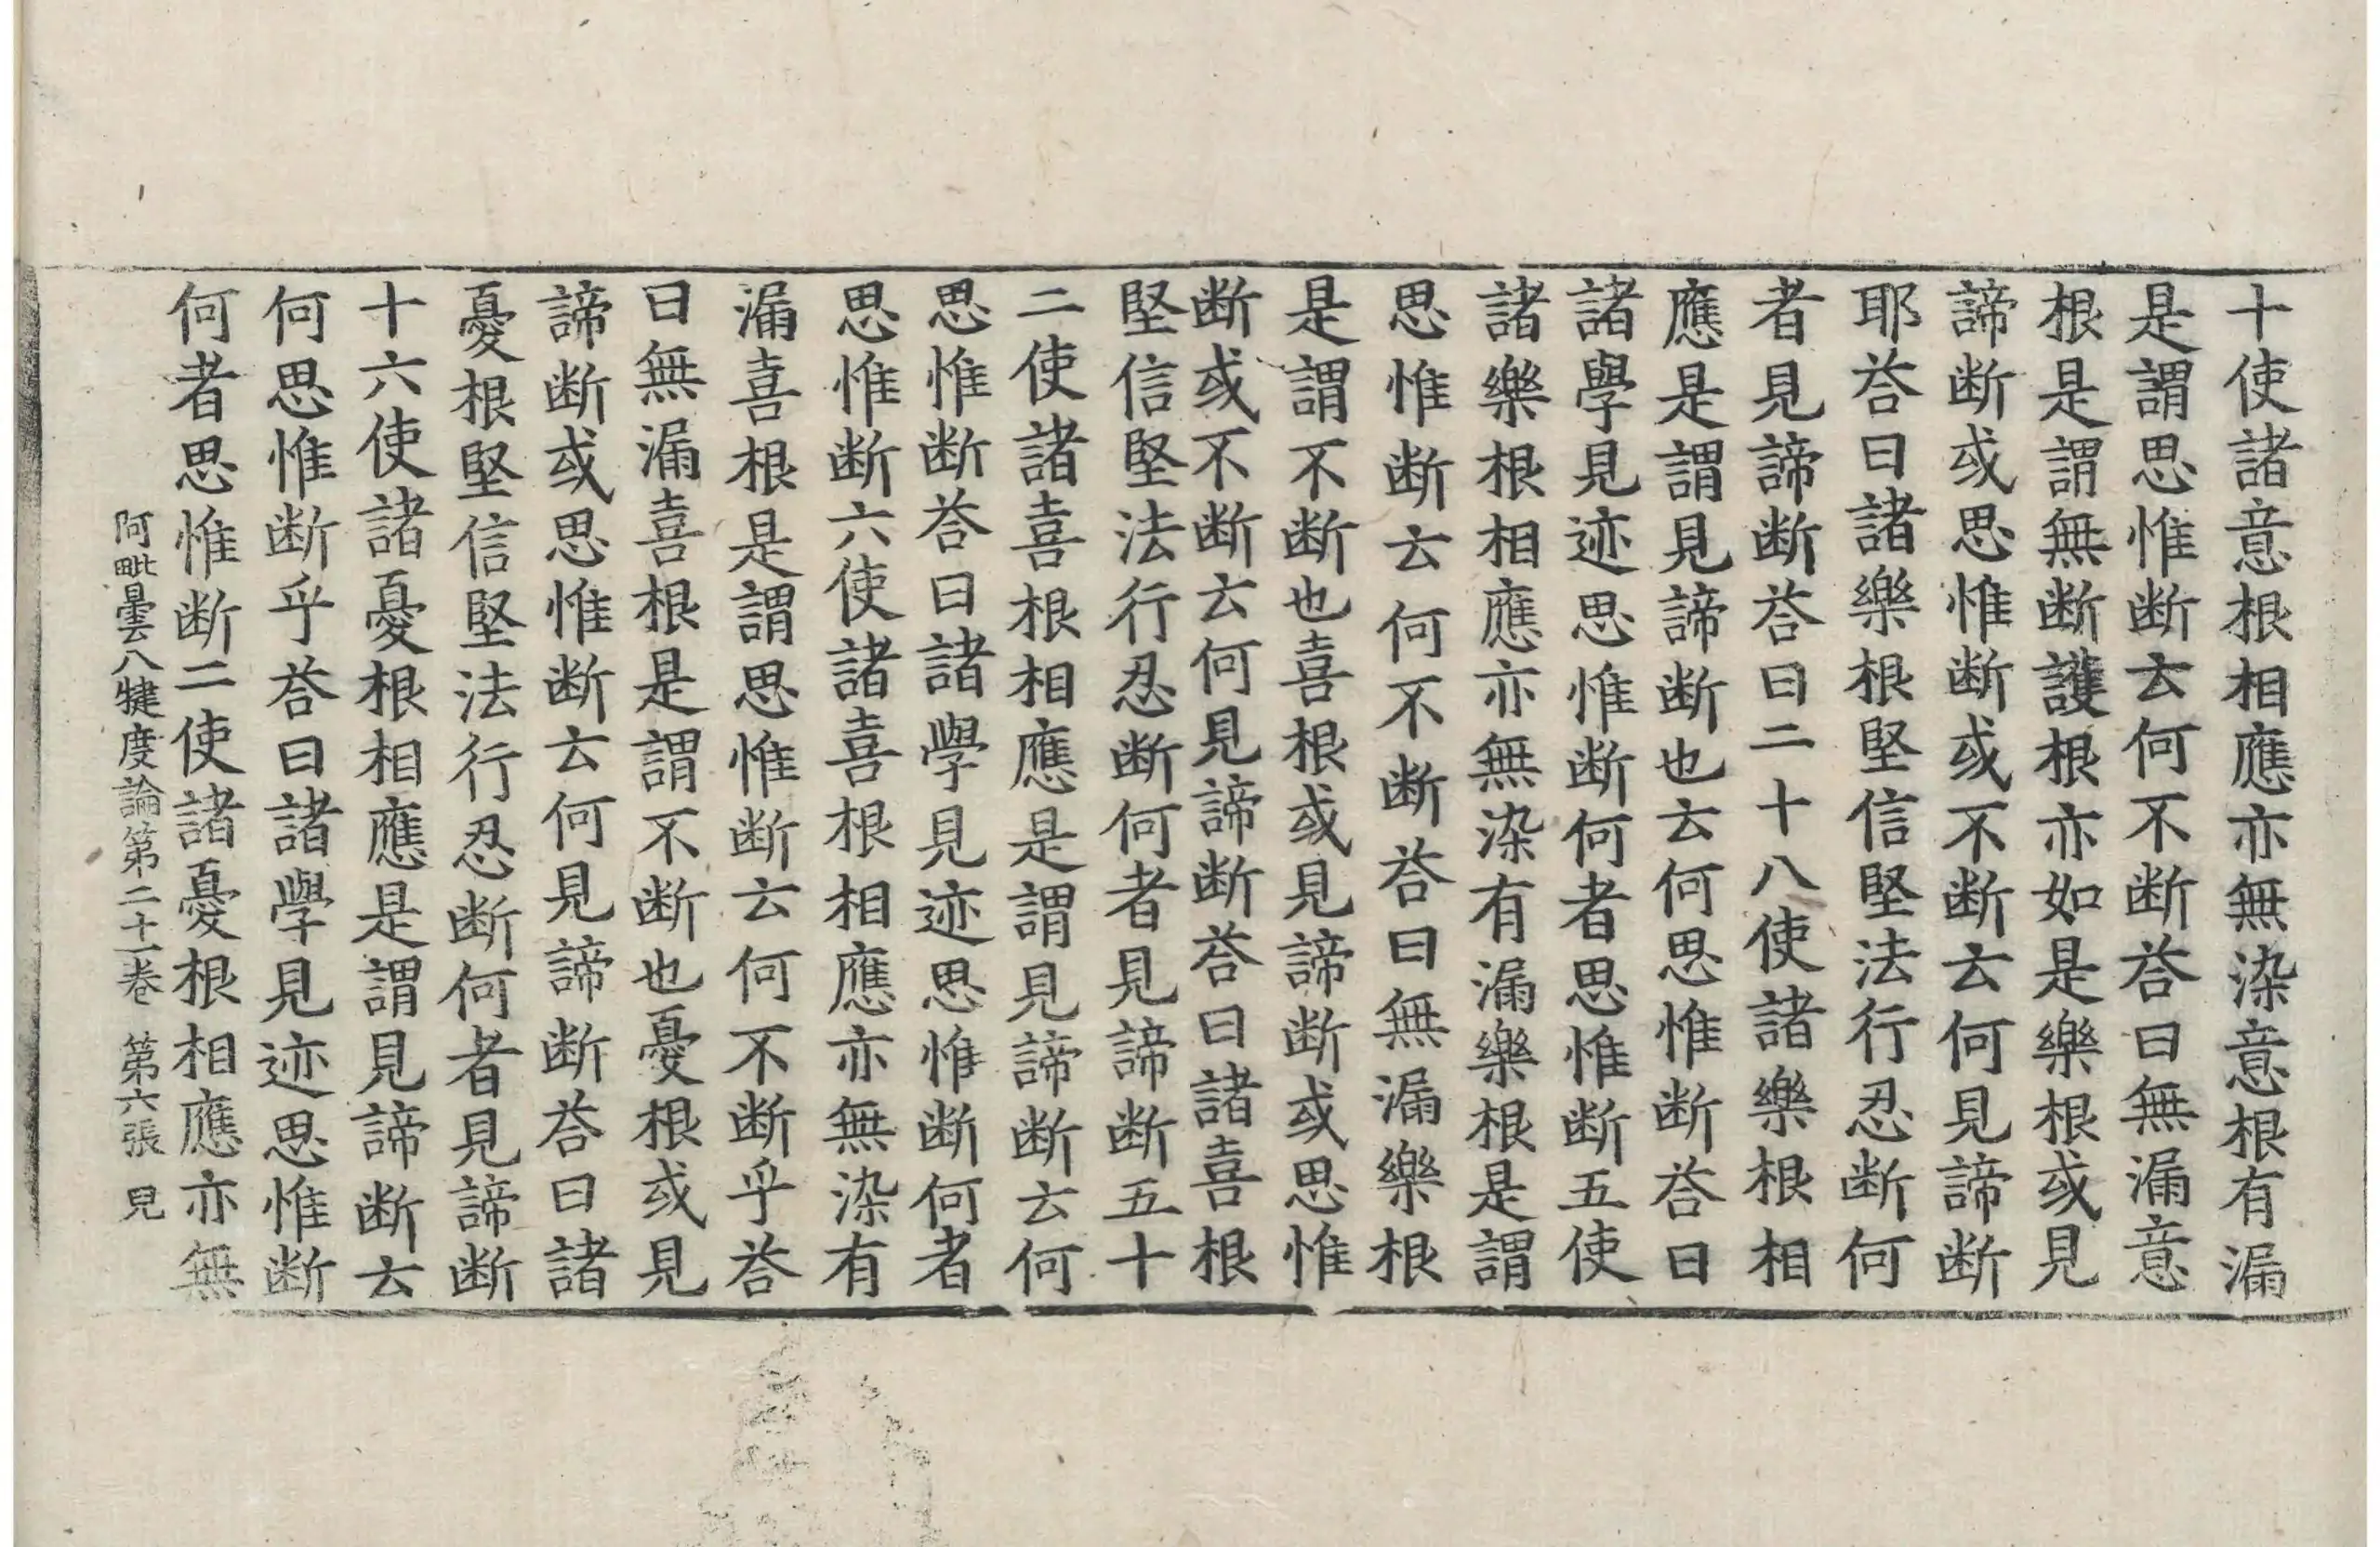 十使諸意根相應亦無染意根有漏
是謂思惟断云何不断荅曰無漏意
根是謂無断護根亦如是樂根或見
諦断或思惟断或不断云何見諦断
耶荅曰諸樂根堅信堅法行忍断何
者見諦断荅曰二十八使諸樂根相
應是謂見諦断也云何思惟断荅曰
諸學見迹思惟断何者思惟断五使
諸樂根相應亦無染有漏樂根是謂
思惟断云何不断荅曰無漏樂根
是謂不断也喜根或見諦断或思惟
断或不断云何見諦断荅曰諸喜根
堅信堅法行忍断何者見諦断五十
二使諸喜根相應是謂見諦断云何
思惟断荅曰諸學見迹思惟断何者
思惟断六使諸喜根相應亦無染有
漏喜根是謂思惟断云何不断乎荅
曰無漏喜根是謂不断也憂根或見
諦断或思惟断云何見諦断荅曰諸
憂根堅信堅法行忍断何者見諦断
十六使諸憂根相應是謂見諦断云
何思惟断乎荅曰諸學見迹思惟断
何者思惟断二使諸憂根相應亦無
阿毗曇八犍度論第二十一卷 第六張 見